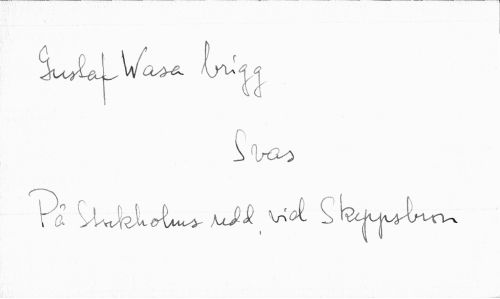 Gustaf Wasa brigg
Svas
På Stockholms redd, vid Skeppsbron